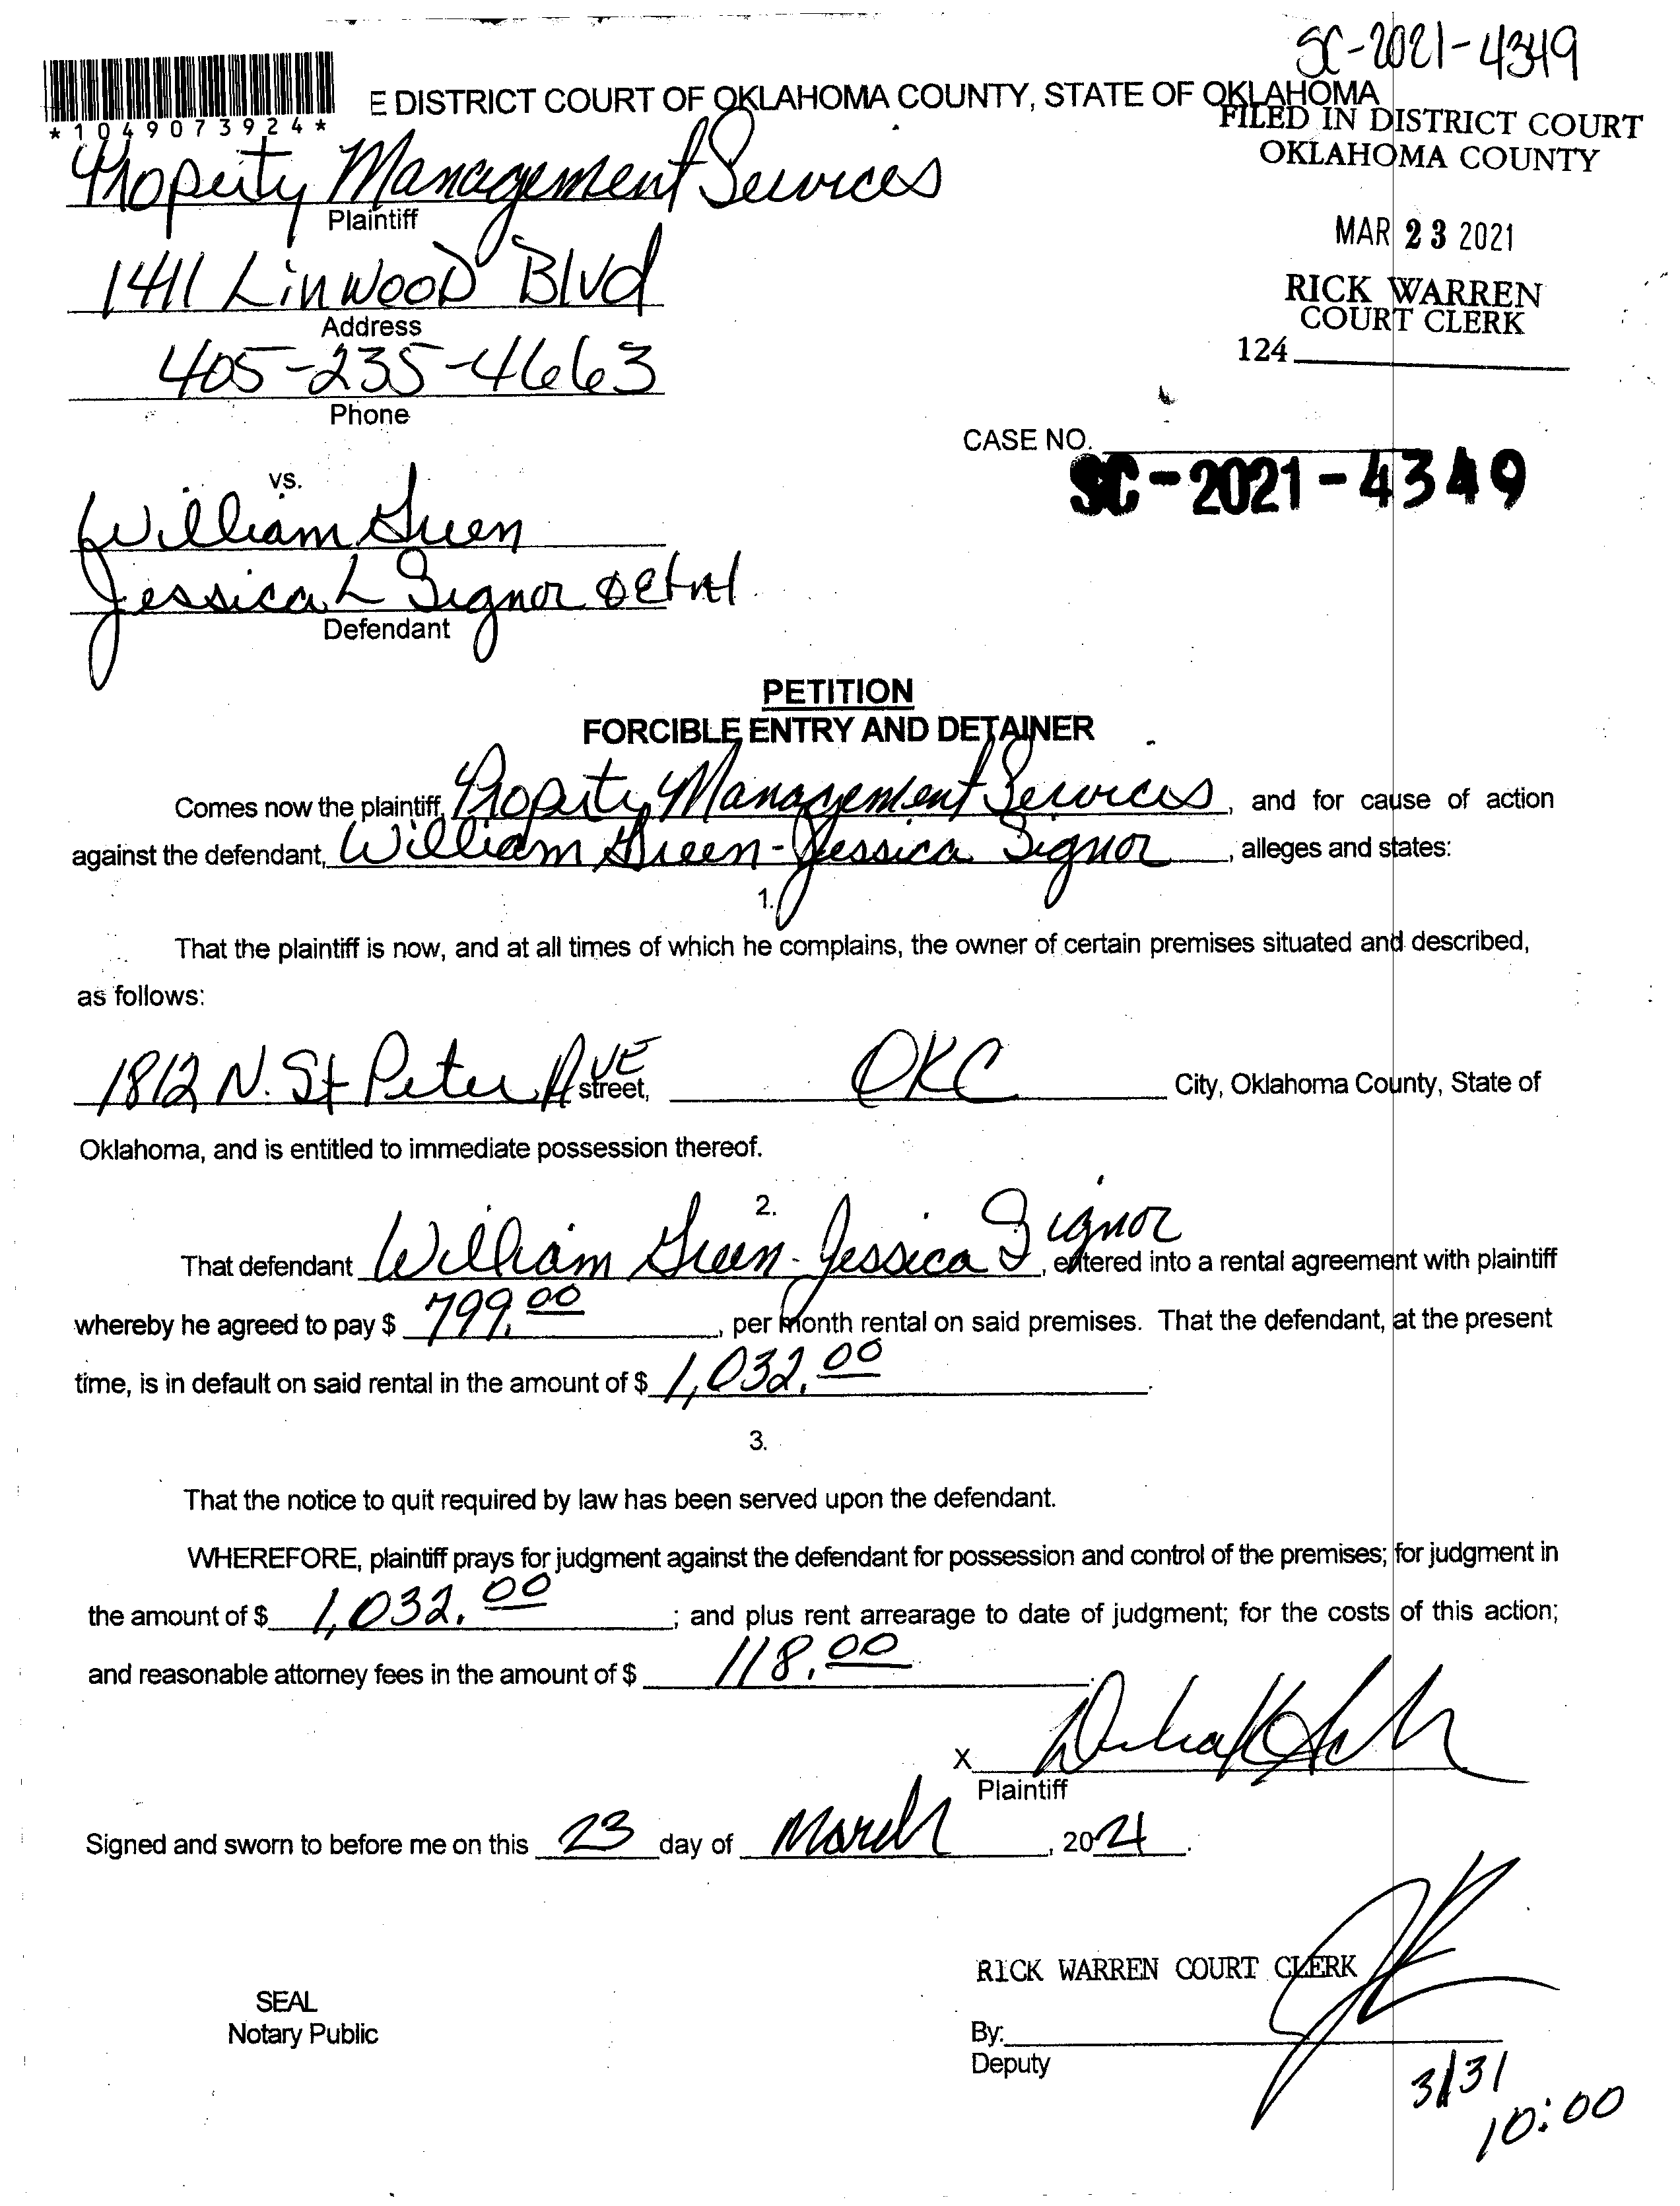 SC-2021-4349
*1049073924*
E DISTRICT COURT OF OKLAHOMA COUNTY, STATE OF OKLAHOMA
FILED IN DISTRICT COURT
OKLAHOMA COUNTY
Property Management Services
Plaintiff
MAR 23 2021
1411 Linwood Blvd
Address
RICK WARREN
COURT CLERK
405-235-4663
Phone
124
CASE NO.
SC-2021-4349
vs.
William Green
Jessica L Signor
Defendant
PETITION
FORCIBLE ENTRY AND DETAINER
Comes now the plaintiff, Property Management Services, and for cause of action
against the defendant, William Green-Jessica Signor, alleges and states:
1.
That the plaintiff is now, and at all times of which he complains, the owner of certain premises situated and described,
as follows:
1812 N. St Peter AVE street, OKC City, Oklahoma County, State of
Oklahoma, and is entitled to immediate possession thereof.
2.
That defendant William Green-Jessica Signor, entered into a rental agreement with plaintiff
whereby he agreed to pay $ 799.00, per month rental on said premises. That the defendant, at the present
time, is in default on said rental in the amount of $ 1,032.00.
3.
That the notice to quit required by law has been served upon the defendant.
WHEREFORE, plaintiff prays for judgment against the defendant for possession and control of the premises; for judgment in
the amount of $ 1,032.00; and plus rent arrearage to date of judgment; for the costs of this action;
and reasonable attorney fees in the amount of $ 118.00.
X
Plaintiff
Signed and sworn to before me on this 23 day of March, 2021.
RICK WARREN COURT CLERK
SEAL
Notary Public
By:
Deputy
3/31
10:00